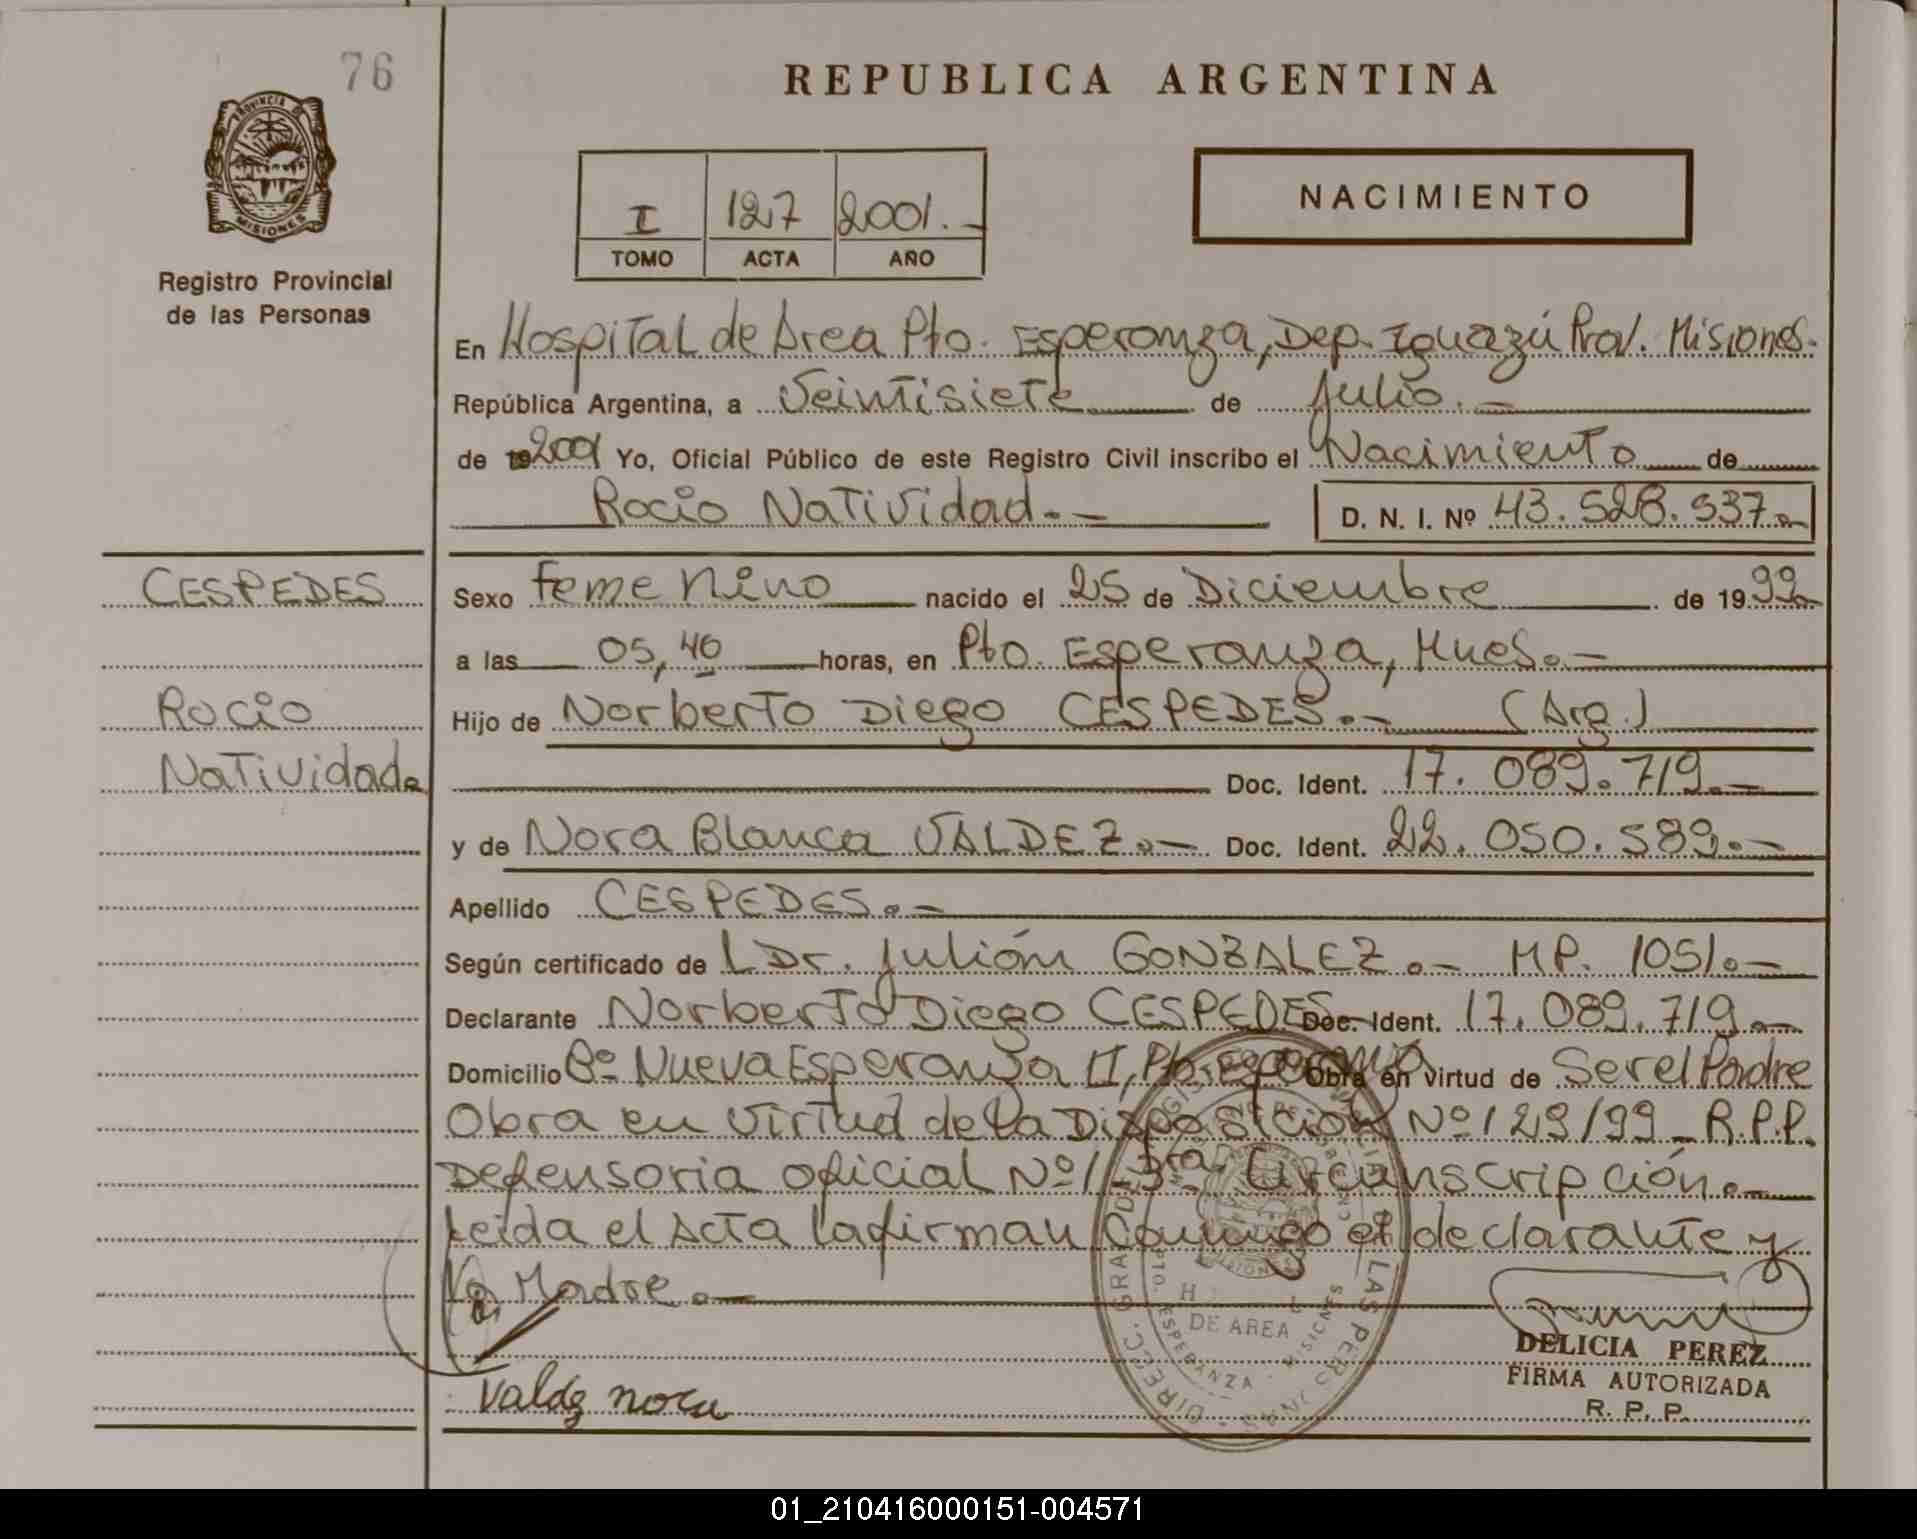 76
PROVINCIA DE
MISIONES
Registro Provincial
de las Personas
REPUBLICA ARGENTINA
I 127 2001.-
TOMO ACTA AÑO
NACIMIENTO
En Hospital de Area Pto. Esperanza, Dep. Iguazú Prov. Misiones.
República Argentina, a Veintisiete de Julio.-
de 2001 Yo, Oficial Público de este Registro Civil inscribo el Nacimiento de
Rocio Natividad.-
D. N. I. Nº 43.528.537.-
CESPEDES
Rocio
Natividad.
Sexo Femenino nacido el 25 de Diciembre de 1999.-
a las 05,40 horas, en Pto. Esperanza, Mnes.-
Hijo de Norberto Diego CESPEDES.- (Arg.)
Doc. Ident. 17.089.719.-
y de Nora Blanca VALDEZ.- Doc. Ident. 22.050.589.-
Apellido CESPEDES.-
Según certificado de Dr. Julián GONZALEZ.- MP. 1051.-
Declarante Norberto Diego CESPEDES Doc. Ident. 17.089.719.-
Domicilio Bº Nueva Esperanza II, Pto. Esperanza Obra en virtud de Ser el Padre
Obra en Virtud de la Disposición Nº 129/99 - R.P.P.
Defensoria oficial Nº 1 - 3ra. Circunscripción.-
Leida el Acta la firman Conmigo el declarante y
la Madre.-
Valdez nora
DE AREA
ESPERANZA - MISIONES
DELICIA PEREZ
FIRMA AUTORIZADA
R. P. P.
01_210416000151-004571